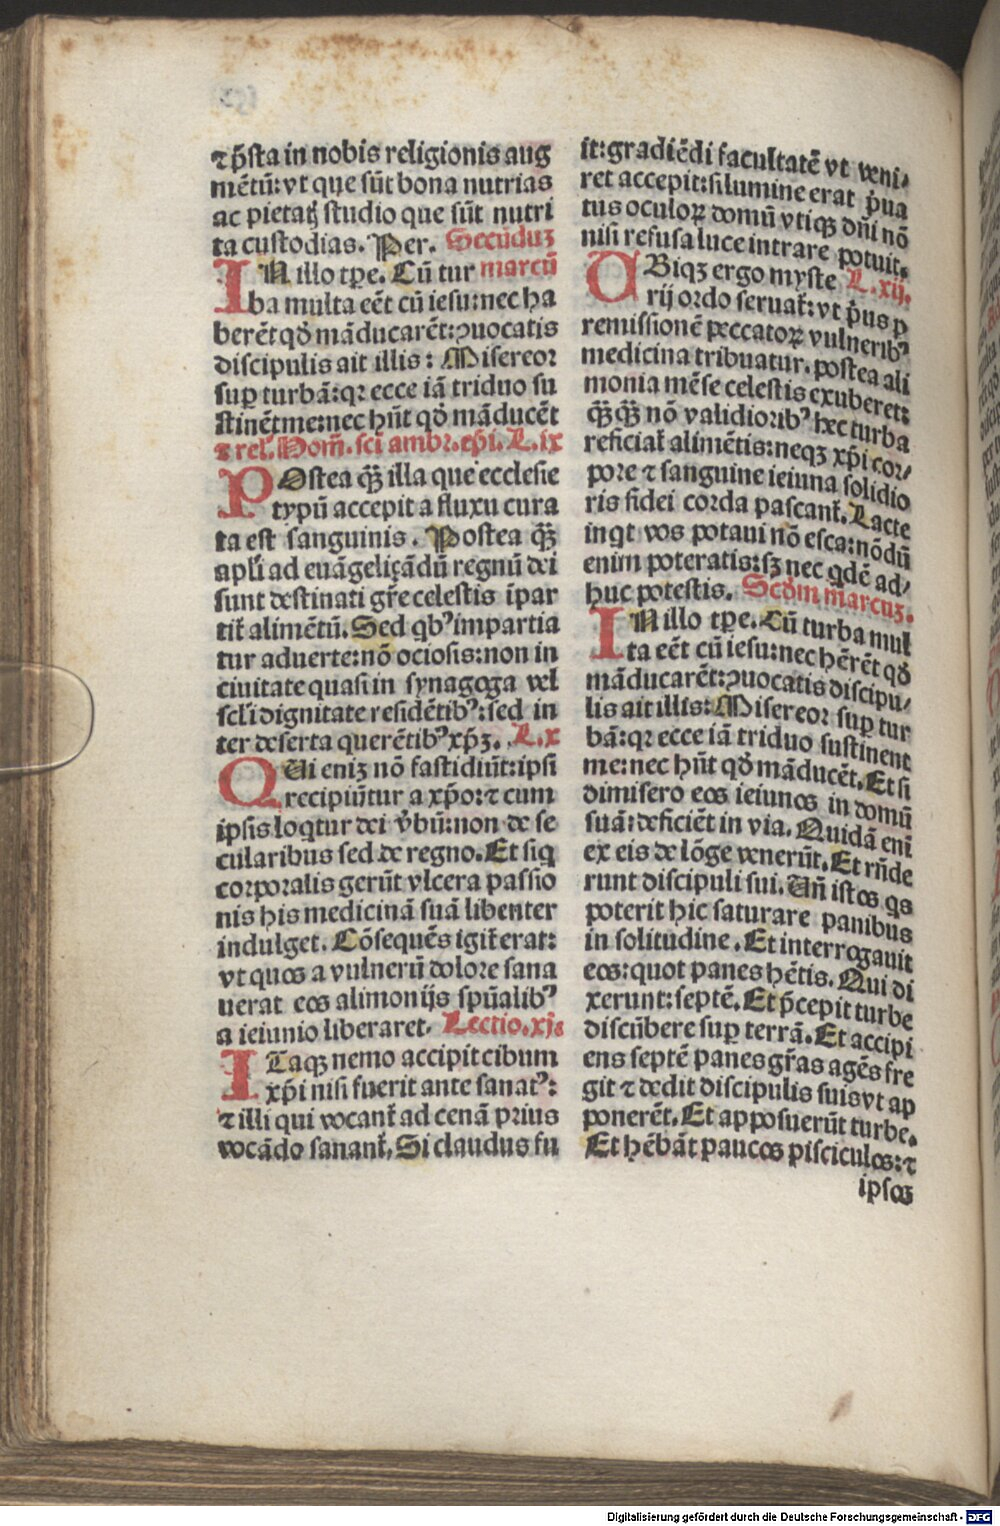 ⁊ p̄sta in nobis religionis aug
mētū: vt que sūt bona nutrias
ac pietatꝭ studio que sūt nutri
ta custodias. Per. Secūduꝫ
IN illo tꝑe. Cū tur marcū
ba multa eēt cū iesu: nec ha
berēt qđ māducarēt: ꝯuocatis
discipulis ait illis: Misereor
suꝑ turbā: qꝛ ecce iā triduo su
stinēt me: nec hn̄t qđ māducēt
⁊ rel̓. Hom̄. sci ambr. eṗi. L. ix
POstea qꝫ̄ illa que ecclesie
typū accepit a fluxu cura
ta est sanguinis. Postea qꝫ̄
apl̓i ad euāgelicādū regnū dei
sunt destinati gr̄e celestis īpar
tit̄ alimētū. Sed qbꝰ impartia
tur aduerte: nō ociosis: non in
ciuitate quasi in synagoga vel
scl̓i dignitate residētibꝰ: sed in
ter deserta querētibꝰ xp̄ꝫ. L. x
QUi enīꝫ nō fastidiūt: ipsi
recipiūtur a xp̄o: ⁊ cum
ipsis loqtur dei v̄bū: non de se
cularibus sed de regno. Et siq
corporalis gerūt vlcera passio
nis his medicinā suā libenter
indulget. Cōsequēs igit̄ erat:
vt quos a vulnerū dolore sana
uerat eos alimonijs spūalibꝰ
a ieiunio liberaret. Lectio. xj.
ITaqꝫ nemo accipit cibum
xp̄i nisi fuerit ante sanatꝰ:
⁊ illi qui vocant̄ ad cenā prius
vocādo sanant̄. Si claudus fu
it: gradiēdi facultatē vt veni⸗
ret accepit: si lumine erat p̄ua
tus oculoꝝ domū vtiqꝫ dn̄i nō
nisi refusa luce intrare potuit.
UBiqꝫ ergo myste L. xij.
rij ordo seruat̄: vt p̄us ꝑ
remissionē peccatoꝝ vulneribꝰ
medicina tribuatur. postea ali
monia mēse celestis exuberet:
qꝫ̄qꝫ̄ nō validioribꝰ hec turba
reficiat̄ alimētis: neqꝫ xp̄i cor⸗
pore ⁊ sanguine ieiuna solidio
ris fidei corda pascant̄. Lacte
inqt vos potaui nō esca: nōdū
enim poteratis: sꝫ nec qdē ad⸗
huc potestis. Scđm marcuꝫ.
IN illo tꝑe. Cū turba mul
ta eēt cū iesu: nec hērēt qđ
māducarēt: ꝯuocatis discipu⸗
lis ait illis: Misereor suꝑ tur
bā: qꝛ ecce iā triduo sustinent
me: nec hn̄t qđ māducēt. Et si
dimisero eos ieiunos in domū
suā: deficiēt in via. Quidā enī
ex eis de lōge venerūt. Et rn̄de
runt discipuli sui. Un̄ istos qs
poterit hic saturare panibus
in solitudine. Et interrogauit
eos: quot panes hētis. Qui di
xerunt: septē. Et p̄cepit turbe
discūbere suꝑ terrā. Et accipi
ens septē panes gr̄as agēs fre
git ⁊ dedit discipulis suis vt ap
ponerēt. Et apposuerūt turbe.
Et hēbāt paucos pisciculos: ⁊
ipsos
Digitalisierung gefördert durch die Deutsche Forschungsgemeinschaft - DFG